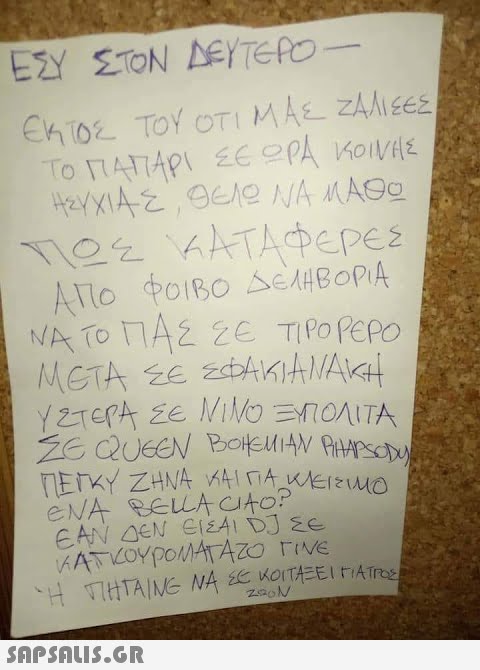 ΕΣΥ ΣΤΟΝ ΔΕΥΤΕΡΟ—
ΕΚΤΟΣ ΤΟΥ ΟΤΙ ΜΑΣ ΖΑΛΙΣΕΣ
ΤΟ ΠΑΠΑΡΙ ΣΕ ΩΡΑ ΚΟΙΝΗΣ
ΗΣΥΧΙΑΣ, ΘΕΛΩ ΝΑ ΜΑΘΩ
ΠΩΣ ΚΑΤΑΦΕΡΕΣ
ΑΠΟ ΦΟΙΒΟ ΔΕΛΗΒΟΡΙΑ
ΝΑ ΤΟ ΠΑΣ ΣΕ ΤΙΡΟΡΕΡΟ
ΜΕΤΑ ΣΕ ΣΦΑΚΙΑΝΑΚΗ
ΥΣΤΕΡΑ ΣΕ ΝΙΝΟ ΞΥΠΟΛΙΤΑ
ΣΕ QUEEN BOHEMIAN RHAPSODY
ΠΕΓΚΥ ΖΗΝΑ ΚΑΙ ΓΙΑ ΚΛΕΙΣΙΜΟ
ΕΝΑ BELLA CIAO?
ΕΑΝ ΔΕΝ ΕΙΣΑΙ DJ ΣΕ
ΚΑΓΚΟΥΡΟΜΑΓΑΖΟ ΓΙΝΕ
Ή ΠΗΓΑΙΝΕ ΝΑ ΣΕ ΚΟΙΤΑΞΕΙ ΓΙΑΤΡΟΣ
ΖΩΩΝ
SAPSALIS.GR